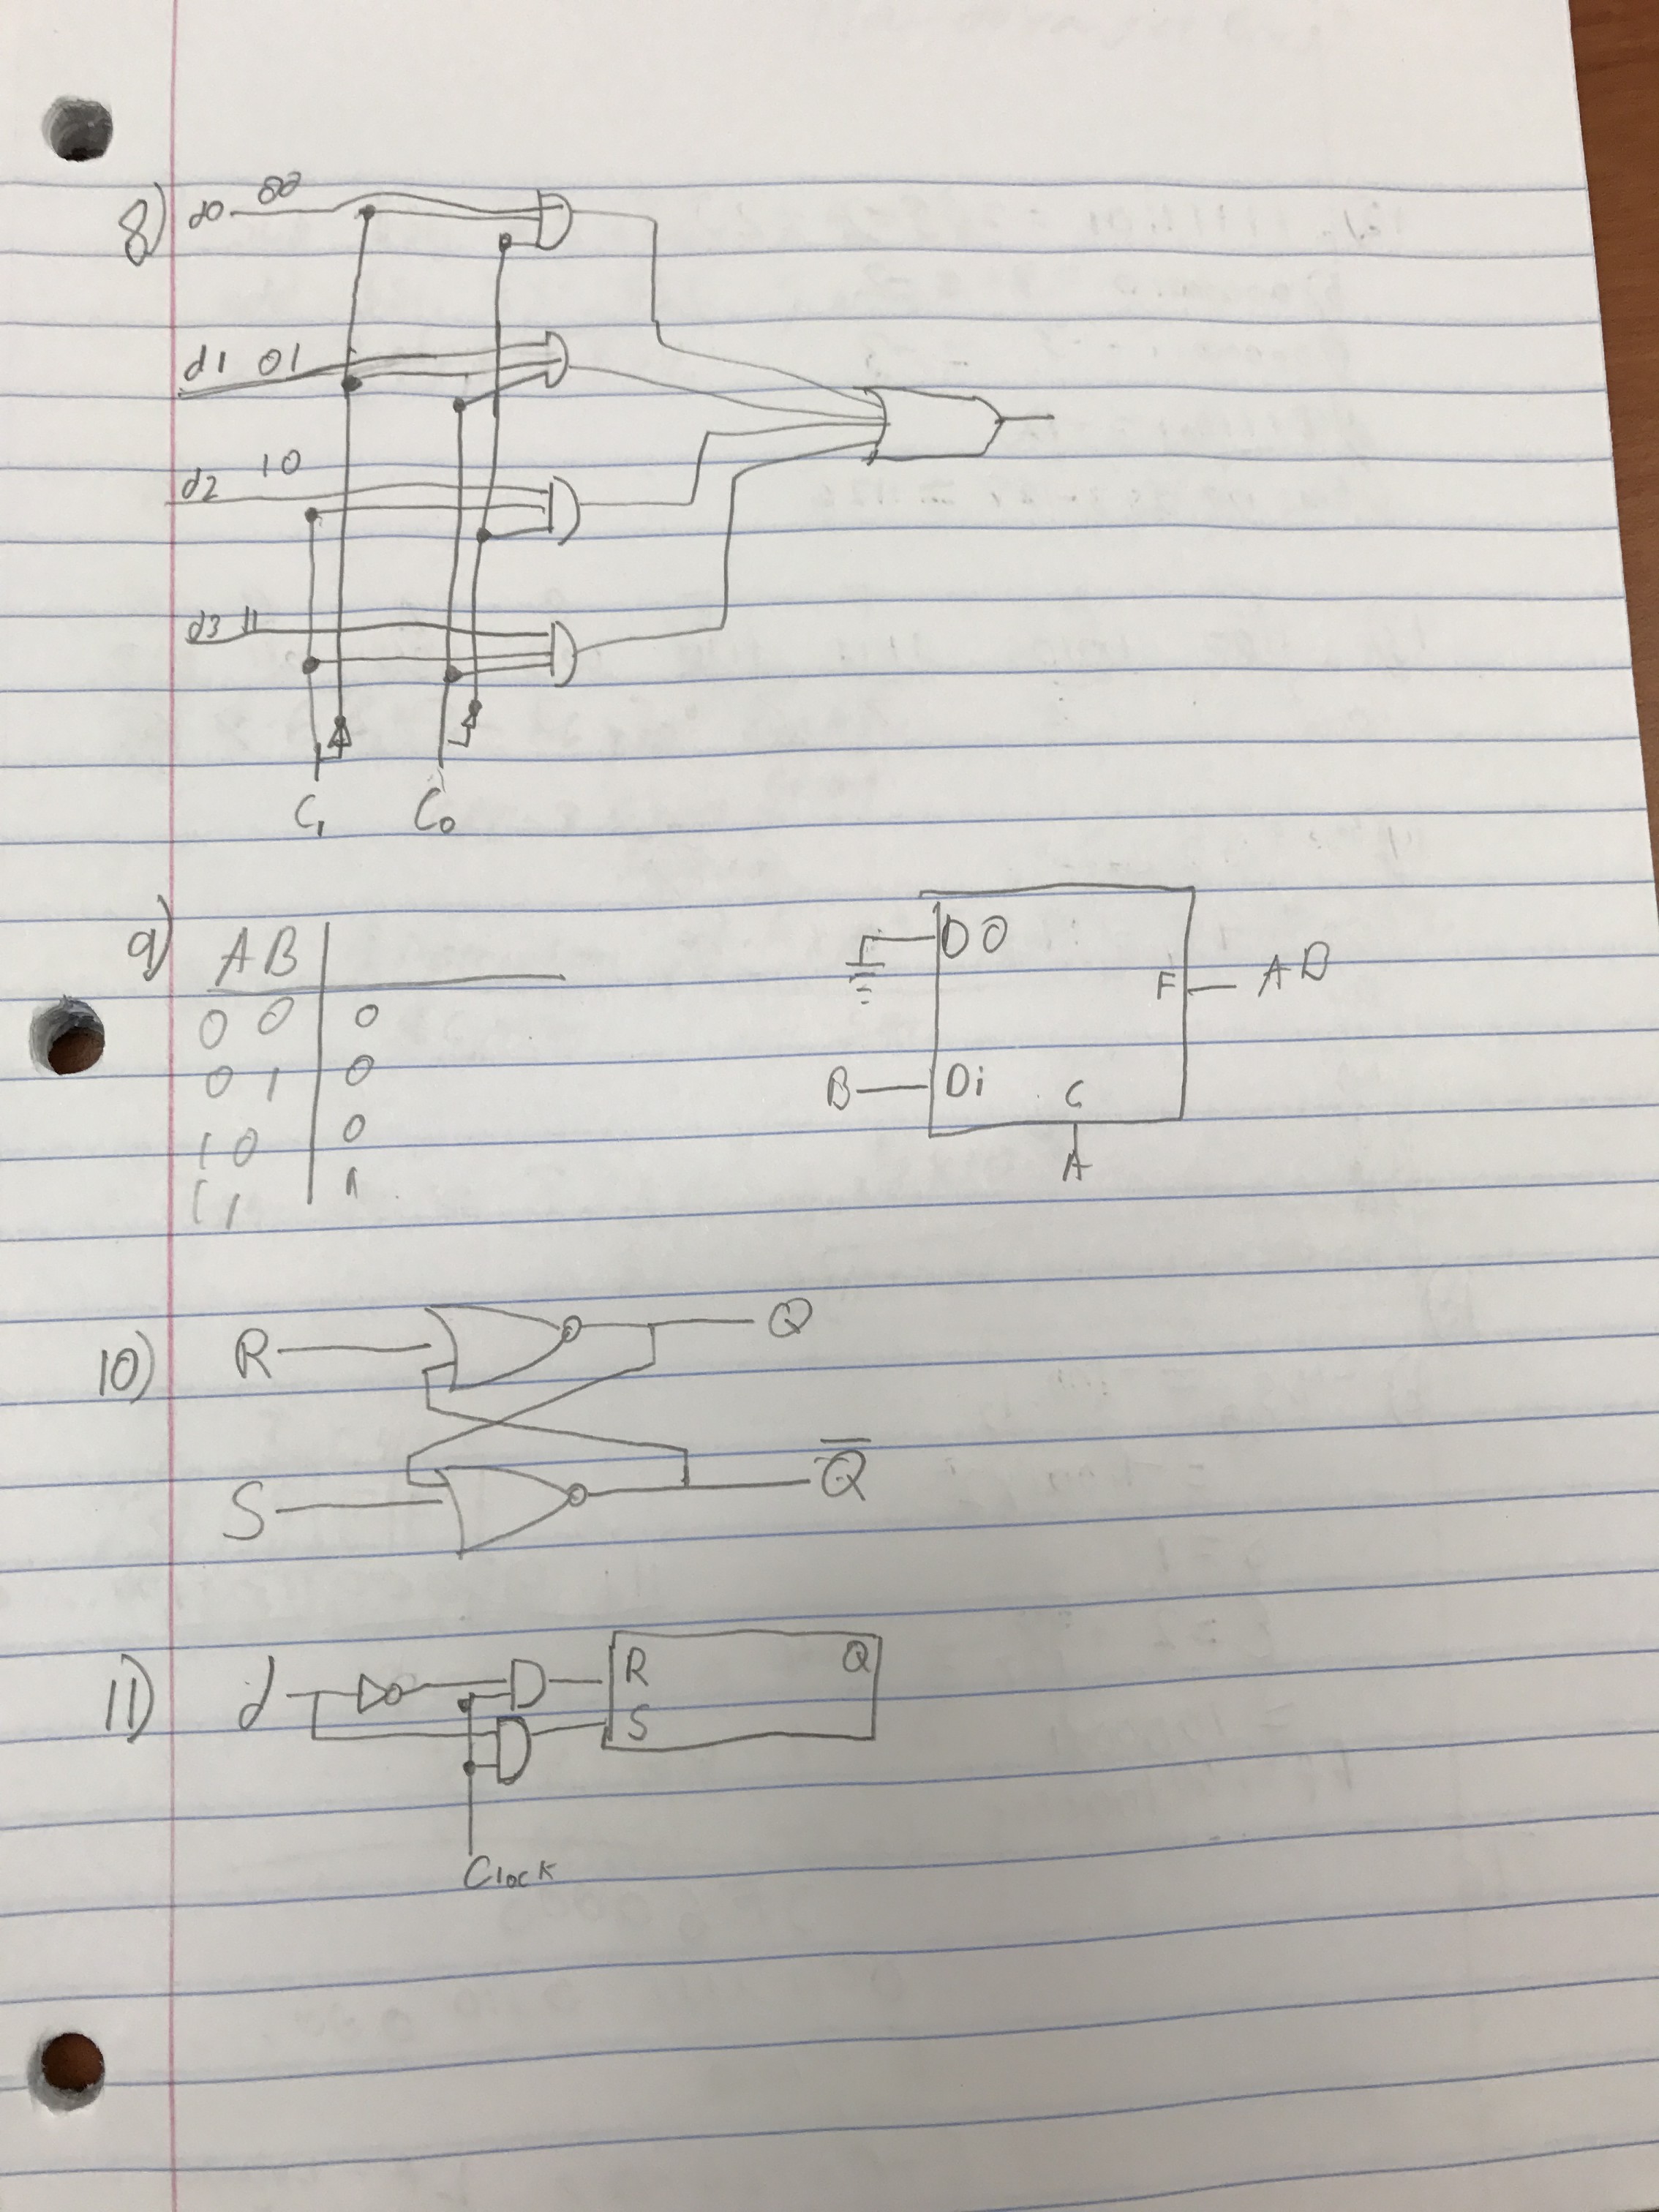 8) d0 00
d1 01
d2 10
d3 11
C1 C0
9) A B
0 0 0
0 1 0
1 0 0
1 1 1
D0
F AB
B Di C
A
10) R Q
S Q̅
11) d R Q
S
Clock